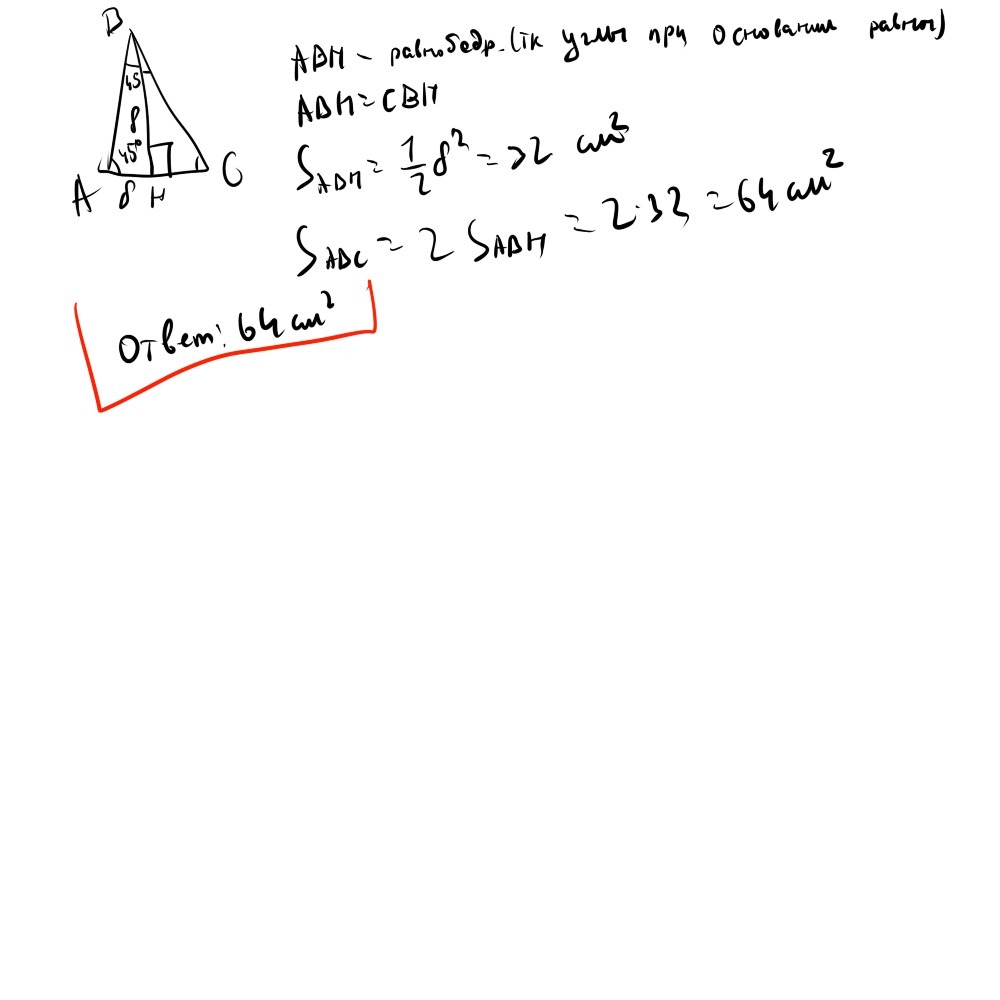 B
45
8
45°
A 8 H C
ABH - равнобедр. (тк углы при основании равны)
ABH = CBH
S_ABH = 1/2 8² = 32 см²
S_ABC = 2 S_ABH = 2·32 = 64 см²
Ответ: 64 см²